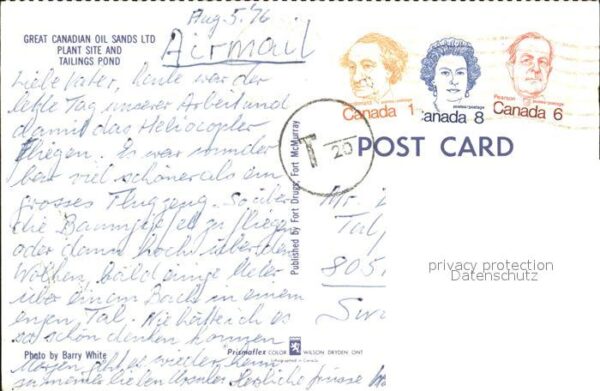 Aug 5. 76
Airmail
GREAT CANADIAN OIL SANDS LTD
PLANT SITE AND
TAILINGS POND
Liebe Vater, heute war der
letzte Tag unserer Arbeit und
damit das Heliocopter
fliegen. Es war wunder
bar viel schöner als ein
grosses Flugzeug. So über
die Baumgipfel zu fliegen
oder dann hoch über den
Wolken, bald einige Meter
über einem Bach in einem
engen Tal. Nie hätte ich es
so schön denken können
Morgen geht es wieder heim
zu meiner lieben Ursula. Herzliche Grüsse
Photo by Barry White
Published by Fort Drugs, Fort McMurray
Prismaflex COLOR WILSON DRYDEN ONT
Lithographed in Canada
T 20
Canada 1
postes/postage
Canada 8
Pearson
postes/postage
Canada 6
POST CARD
Mr.
Tal
805
Sw
privacy protection
Datenschutz